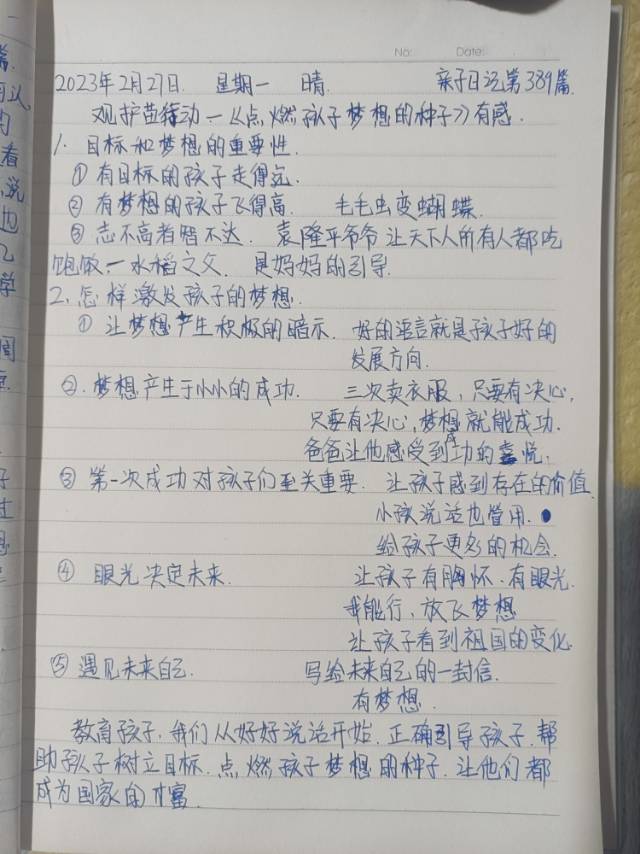 No:
Date:
2023年2月27日. 星期一 晴 亲子日记第389篇.
观护苗行动一《点燃孩子梦想的种子》有感.
1. 目标和梦想的重要性.
① 有目标的孩子走得远.
② 有梦想的孩子飞得高. 毛毛虫变蝴蝶.
③ 志不高者智不达. 袁隆平爷爷让天下人所有人都吃
饱饭.一水稻之父. 是妈妈的引导.
2. 怎样激发孩子的梦想.
① 让梦想产生积极的暗示. 好的语言就是孩子好的
发展方向.
②. 梦想产生于小小的成功. 三次卖衣服,只要有决心,
只要有决心,梦想就能成功.
爸爸让他感受到成功的喜悦.
③ 第一次成功对孩子们至关重要. 让孩子感到存在的价值.
小孩说话也管用.
给孩子更多的机会.
④ 眼光决定未来. 让孩子有胸怀.有眼光.
我能行,放飞梦想
让孩子看到祖国的变化.
⑤ 遇见未来自己. 写给未来自己的一封信.
有梦想.
教育孩子.我们从好好说话开始.正确引导孩子.帮
助孩子树立目标.点燃孩子梦想的种子.让他们都
成为国家的财富.